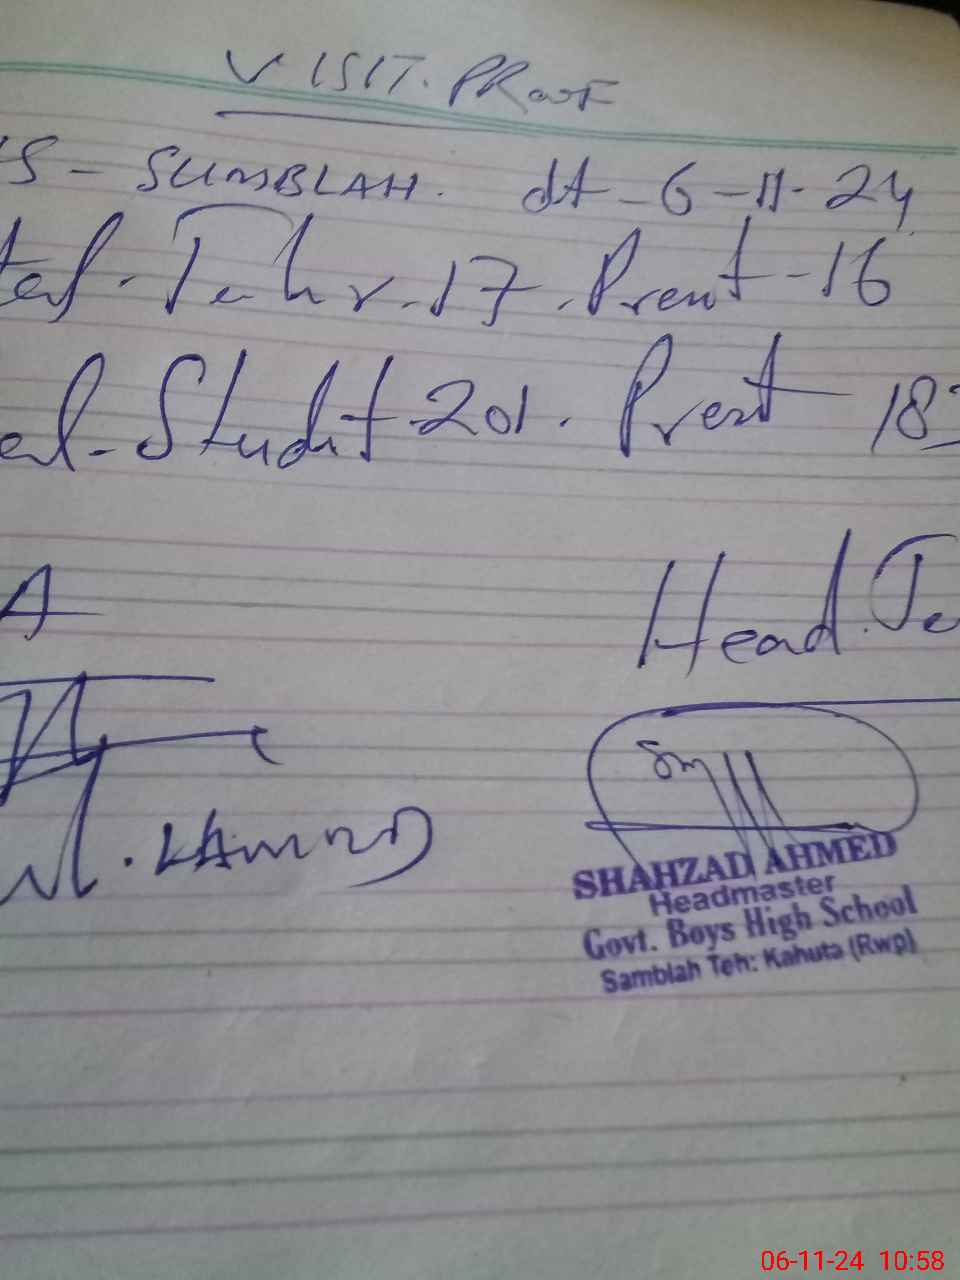 VISIT. PROOF
S - SUMBLAH. dt - 6 - 11 - 24
Tehr - 17 . Prent - 16
Studt - 201 . Prent 18
A
Head Te
M.
SHAHZAD AHMED
Headmaster
Govt. Boys High School
Samblah Teh: Kahuta (Rwp)
06-11-24 10:58